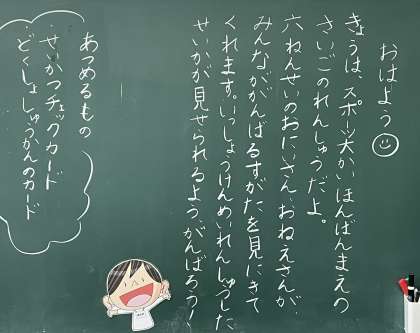 おはよう☺
きょうは、スポーツ大かいほんばんまえの
さいごのれんしゅうだよ。
六ねんせいのおにいさん、おねえさんが、
みんながんばるすがたを見にきて
くれます。いっしょうけんめいれんしゅうした
せいかが見せられるよう、がんばろう!
あつめるもの
・せいかつチェックカード
・どくしょしゅうかんのカード